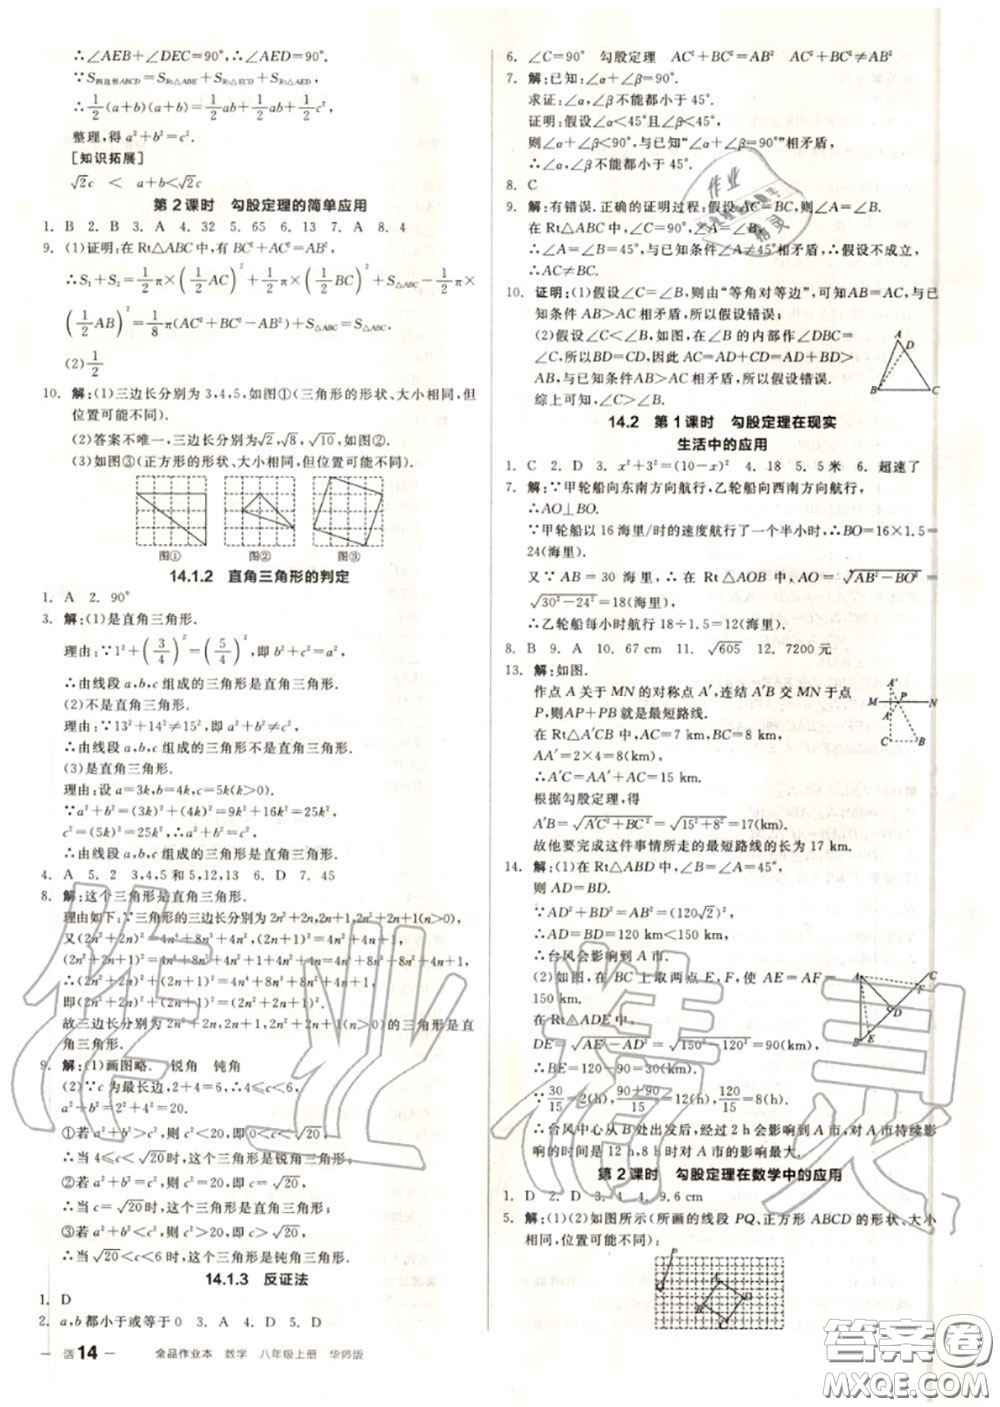 ∴∠AEB+∠DEC=90°,∴∠AED=90°.
∵S四边形ABCD=SRt△ABE+SRt△ECD+SRt△AED,
∴1/2(a+b)(a+b)=1/2ab+1/2ab+1/2c²,
整理,得 a²+b²=c².
[知识拓展]
√2c < a+b<√2c
第2课时 勾股定理的简单应用
1. B 2. B 3. A 4. 32 5. 65 6. 13 7. A 8. 4
9. (1)证明:在 Rt△ABC 中,有 BC²+AC²=AB²,
∴S₁+S₂=1/2π×(1/2AC)²+1/2π×(1/2BC)²+S△ABC-1/2π×
(1/2AB)²=1/8π(AC²+BC²-AB²)+S△ABC=S△ABC.
(2)1/2
10. 解:(1)三边长分别为 3,4,5,如图①(三角形的形状、大小相同,但
位置可能不同).
(2)答案不唯一,三边长分别为√2,√8,√10,如图②.
(3)如图③(正方形的形状、大小相同,但位置可能不同).
图① 图② 图③
14.1.2 直角三角形的判定
1. A 2. 90°
3. 解:(1)是直角三角形.
理由:∵1²+(3/4)²=(5/4)²,即 b²+c²=a²,
∴由线段 a,b,c 组成的三角形是直角三角形.
(2)不是直角三角形.
理由:∵13²+14²≠15²,即 a²+b²≠c²,
∴由线段 a,b,c 组成的三角形不是直角三角形.
(3)是直角三角形.
理由:设 a=3k,b=4k,c=5k(k>0).
∵a²+b²=(3k)²+(4k)²=9k²+16k²=25k²,
c²=(5k)²=25k²,∴a²+b²=c²,
∴由线段 a,b,c 组成的三角形是直角三角形.
4. A 5. 2 3,4,5 和 5,12,13 6. D 7. 45
8. 解:这个三角形是直角三角形.
理由如下:∵三角形的三边长分别为 2n²+2n,2n+1,2n²+2n+1(n>0),
又(2n²+2n)²=4n⁴+8n³+4n²,(2n+1)²=4n²+4n+1,
(2n²+2n+1)²=4n⁴+8n³+8n²+4n+1,
∴(2n²+2n)²+(2n+1)²=4n⁴+8n³+8n²+4n+1,
即(2n²+2n)²+(2n+1)²=(2n²+2n+1)².
故三边长分别为 2n²+2n,2n+1,2n²+2n+1(n>0)的三角形是直
角三角形.
9. 解:(1)画图略. 锐角 钝角
(2)∵c 为最长边,2+4=6,∴4≤c<6,
a²+b²=2²+4²=20.
①若 a²+b²>c²,则 c²<20,即 0<c<√20,
∴当 4≤c<√20时,这个三角形是锐角三角形;
②若 a²+b²=c²,则 c²=20,即 c=√20,
∴当 c=√20时,这个三角形是直角三角形;
③若 a²+b²<c²,则 c²>20,即 c>√20,
∴当√20<c<6 时,这个三角形是钝角三角形.
14.1.3 反证法
1. D
2. a,b 都小于或等于 0 3. A 4. D 5. D
活 14 全品作业本 数学 八年级上册 华师版
6. ∠C=90° 勾股定理 AC²+BC²=AB² AC²+BC²≠AB²
7. 解:已知:∠α+∠β=90°.
求证:∠α,∠β不能都小于 45°.
证明:假设∠α<45°且∠β<45°,
则∠α+∠β<90°,与已知“∠α+∠β=90°”相矛盾,
∴∠α,∠β不能都小于 45°.
8. C
9. 有错误.正确的证明过程:假设 AC=BC,则∠A=∠B.
在 Rt△ABC 中,∵∠C=90°,
∴∠A=∠B=45°,与已知条件∠A≠45°相矛盾,∴假设不成立,
∴AC≠BC.
10. 证明:(1)假设∠C=∠B,则由“等角对等边”,可知AB=AC,与已
知条件 AB>AC 相矛盾,所以假设错误;
(2)假设∠C<∠B,如图,在∠B 的内部作∠DBC=
∠C,所以BD=CD,因此 AC=AD+CD=AD+BD>
AB,与已知条件AB>AC相矛盾,所以假设错误.
综上可知,∠C>∠B.
A D B C
14.2 第1课时 勾股定理在现实
生活中的应用
1. C 2. D 3. x²+3²=(10-x)² 4. 18 5. 5 米 6. 超速了
7. 解:∵甲轮船向东南方向航行,乙轮船向西南方向航行,
∴AO⊥BO.
∵甲轮船以 16 海里/时的速度航行了一个半小时,∴BO=16×1.5=
24(海里).
又∵AB=30 海里,∴在 Rt△AOB 中,AO=√AB²-BO²=
√30²-24²=18(海里),
∴乙轮船每小时航行 18÷1.5=12(海里).
8. B 9. A 10. 67 cm 11. √605 12. 7200 元
13. 解:如图.
作点 A 关于 MN 的对称点 A′,连结 A′B 交 MN 于点
P,则AP+PB就是最短路线.
在 Rt△A′CB 中,AC=7 km,BC=8 km,
AA′=2×4=8(km),
∴A′C=AA′+AC=15 km.
根据勾股定理,得
A′B=√A′C²+BC²=√15²+8²=17(km).
故他要完成这件事情所走的最短路线的长为 17 km.
A′ M P N A C B
14. 解:(1)在 Rt△ABD 中,∠B=∠A=45°,
则 AD=BD.
∵AD²+BD²=AB²=(120√2)²,
∴AD=BD=120 km<150 km,
∴台风会影响到 A 市.
(2)如图,在 BC 上取两点 E,F,使 AE=AF=
150 km.
在 Rt△ADE 中,
DE=√AE²-AD²=√150²-120²=90(km),
∴BE=120-90=30(km).
∵30/15=2(h),(90+90)/15=12(h),120/15=8(h),
∴台风中心从 B 处出发后,经过 2 h 会影响到 A 市,对 A 市持续影
响的时间是 12 h,8 h 后对 A 市的影响最大.
A C F D E B
第2课时 勾股定理在数学中的应用
1. D 2. D 3. 4 4. 9.6 cm
5. 解:(1)(2)如图所示(所画的线段 PQ、正方形 ABCD 的形状、大小
相同,位置可能不同):
作业
精灵
作业精灵
答案圈
MXQE.COM